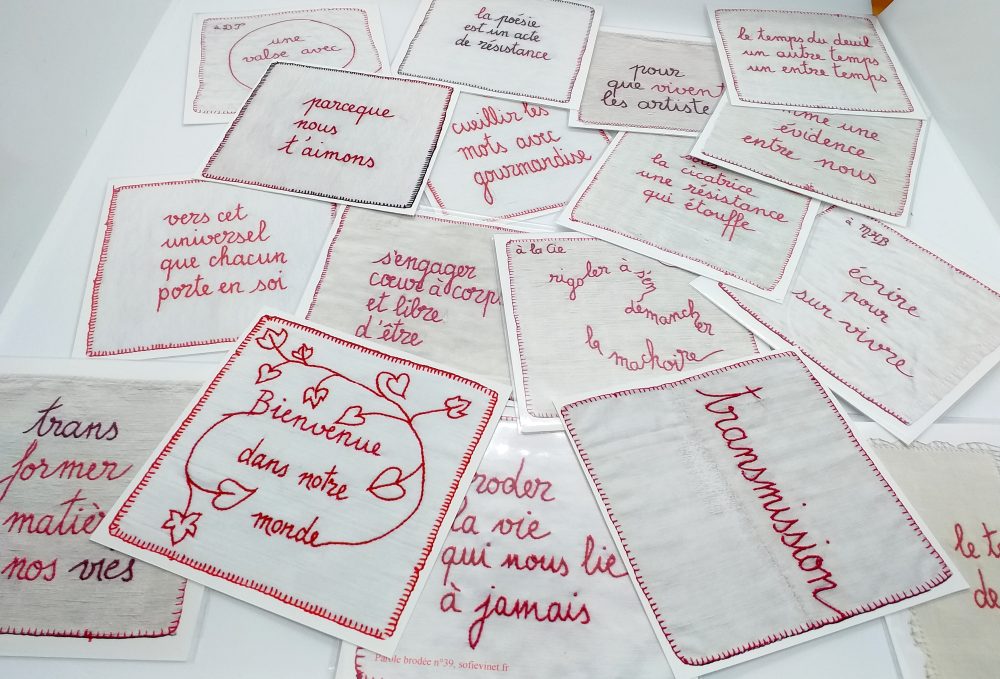 à DJ
une
valse avec
la poésie
est un acte
de résistance
pour
que vivent
les artiste
le temps du deuil
un autre temps
un entre temps
parceque
nous
t'aimons
cueillir les
mots avec
gourmandise
une
évidence
entre nous
sous
la cicatrice
une résistance
qui étouffe
vers cet
universel
que chacun
porte en soi
s'engager
cœur à corps
et libre
d'être
à la Cie
rigoler à s'en
démancher
la machoire
à MHB
écrire
pour
sur vivre
trans
former
matiè
nos vies
Bienvenue
dans notre
monde
roder
la vie
qui nous lie
à jamais
Parole brodée n°39, sofievinet.fr
transmission
le te
de